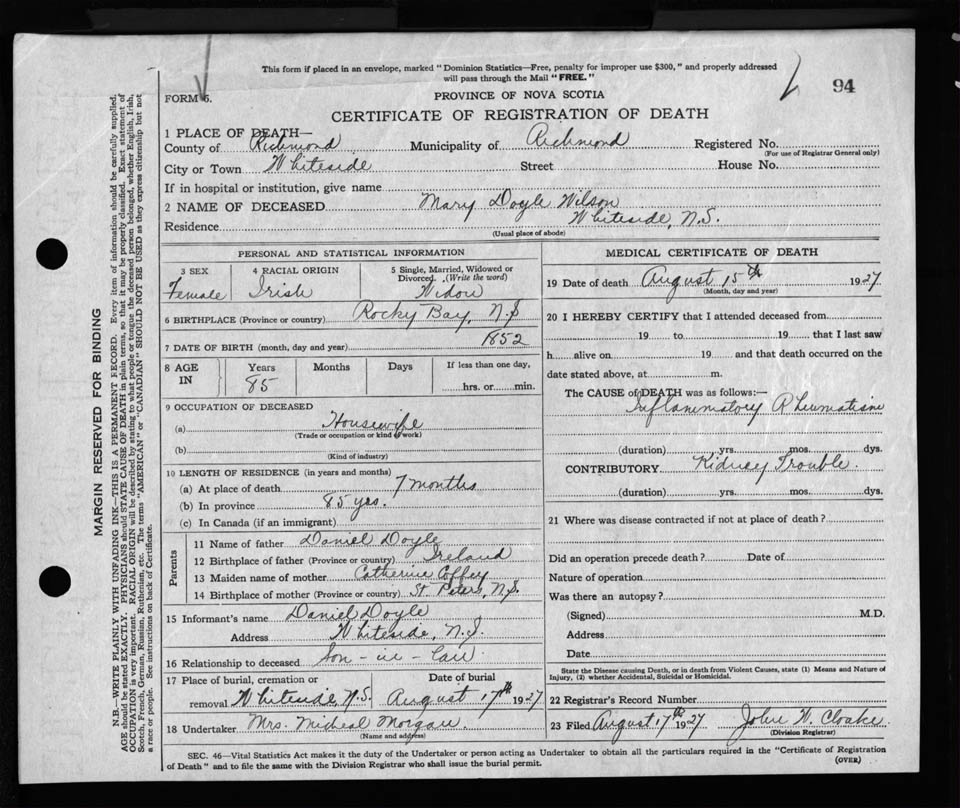 This form if placed in an envelope, marked "Dominion Statistics—Free, penalty for improper use $300," and properly addressed
will pass through the Mail "FREE."
94
FORM 6.
PROVINCE OF NOVA SCOTIA
CERTIFICATE OF REGISTRATION OF DEATH
1 PLACE OF DEATH—
County of Richmond Municipality of Richmond Registered No.
(For use of Registrar General only)
City or Town Whiteside Street House No.
If in hospital or institution, give name
2 NAME OF DECEASED Mary Doyle Wilson
Residence Whiteside, N.S.
(Usual place of abode)
PERSONAL AND STATISTICAL INFORMATION
3 SEX 4 RACIAL ORIGIN 5 Single, Married, Widowed or
Divorced. (Write the word)
Female Irish Widow
6 BIRTHPLACE (Province or country) Rocky Bay, N.S
7 DATE OF BIRTH (month, day and year) 1852
8 AGE IN Years Months Days If less than one day,
85 hrs. or min.
9 OCCUPATION OF DECEASED
(a) Housewife
(Trade or occupation or kind of work)
(b)
(Kind of industry)
10 LENGTH OF RESIDENCE (in years and months)
(a) At place of death 7 months
(b) In province 85 yrs.
(c) In Canada (if an immigrant)
Parents
11 Name of father Daniel Doyle
12 Birthplace of father (Province or country) Ireland
13 Maiden name of mother Catherine Coffey
14 Birthplace of mother (Province or country) St. Peters, N.S.
15 Informant's name Daniel Doyle
Address Whiteside, N.S.
16 Relationship to deceased Son-in-law
17 Place of burial, cremation or Date of burial
removal Whiteside N.S. August 17th 1927
18 Undertaker Mrs. Micheal Morgan
(Name and address)
MEDICAL CERTIFICATE OF DEATH
19 Date of death August 15th 1927
(Month, day and year)
20 I HEREBY CERTIFY that I attended deceased from
19 to 19 that I last saw
h alive on 19 and that death occurred on the
date stated above, at m.
The CAUSE of DEATH was as follows:—
Inflammatory Rheumatism
(duration) yrs. mos. dys.
CONTRIBUTORY Kidney Trouble
(duration) yrs. mos. dys.
21 Where was disease contracted if not at place of death?
Did an operation precede death? Date of
Nature of operation
Was there an autopsy?
(Signed) M.D.
Address
Date
State the Disease causing Death, or in death from Violent Causes, state (1) Means and Nature of
Injury, (2) whether Accidental, Suicidal or Homicidal.
22 Registrar's Record Number
23 Filed August 17th 1927 John W. Cloake
(Division Registrar)
SEC. 46—Vital Statistics Act makes it the duty of the Undertaker or person acting as Undertaker to obtain all the particulars required in the "Certificate of Registration
of Death" and to file the same with the Division Registrar who shall issue the burial permit.
(OVER)
MARGIN RESERVED FOR BINDING
N.B.—WRITE PLAINLY WITH UNFADING INK—THIS IS A PERMANENT RECORD. Every item of information should be carefully supplied.
AGE should be stated EXACTLY. PHYSICIANS should STATE CAUSE OF DEATH in plain terms, so that it may be properly classified. Exact statement of
OCCUPATION is very important. RACIAL ORIGIN will be described by stating to what people or tongue the deceased person belonged, whether English, Irish,
Scotch, French, German, Russian, Ruthenian, etc. The terms "AMERICAN" or "CANADIAN" SHOULD NOT BE USED as they express citizenship but not
a race or people. See instructions on back of Certificate.